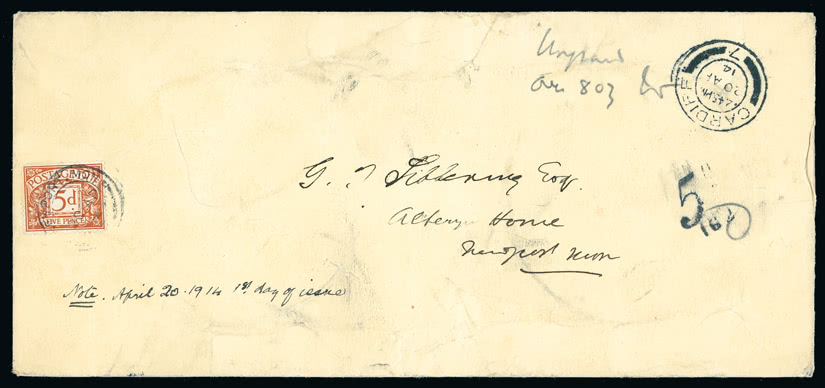 Unpaid
over 8 oz
CARDIFF
7
4.45 PM
20 AP
14
POSTAGE DUE
5d
FIVE PENCE
5
G. J. Fibbering Esq.
Home
Newport Mon
Note. April 20. 1914 1st. day of issue